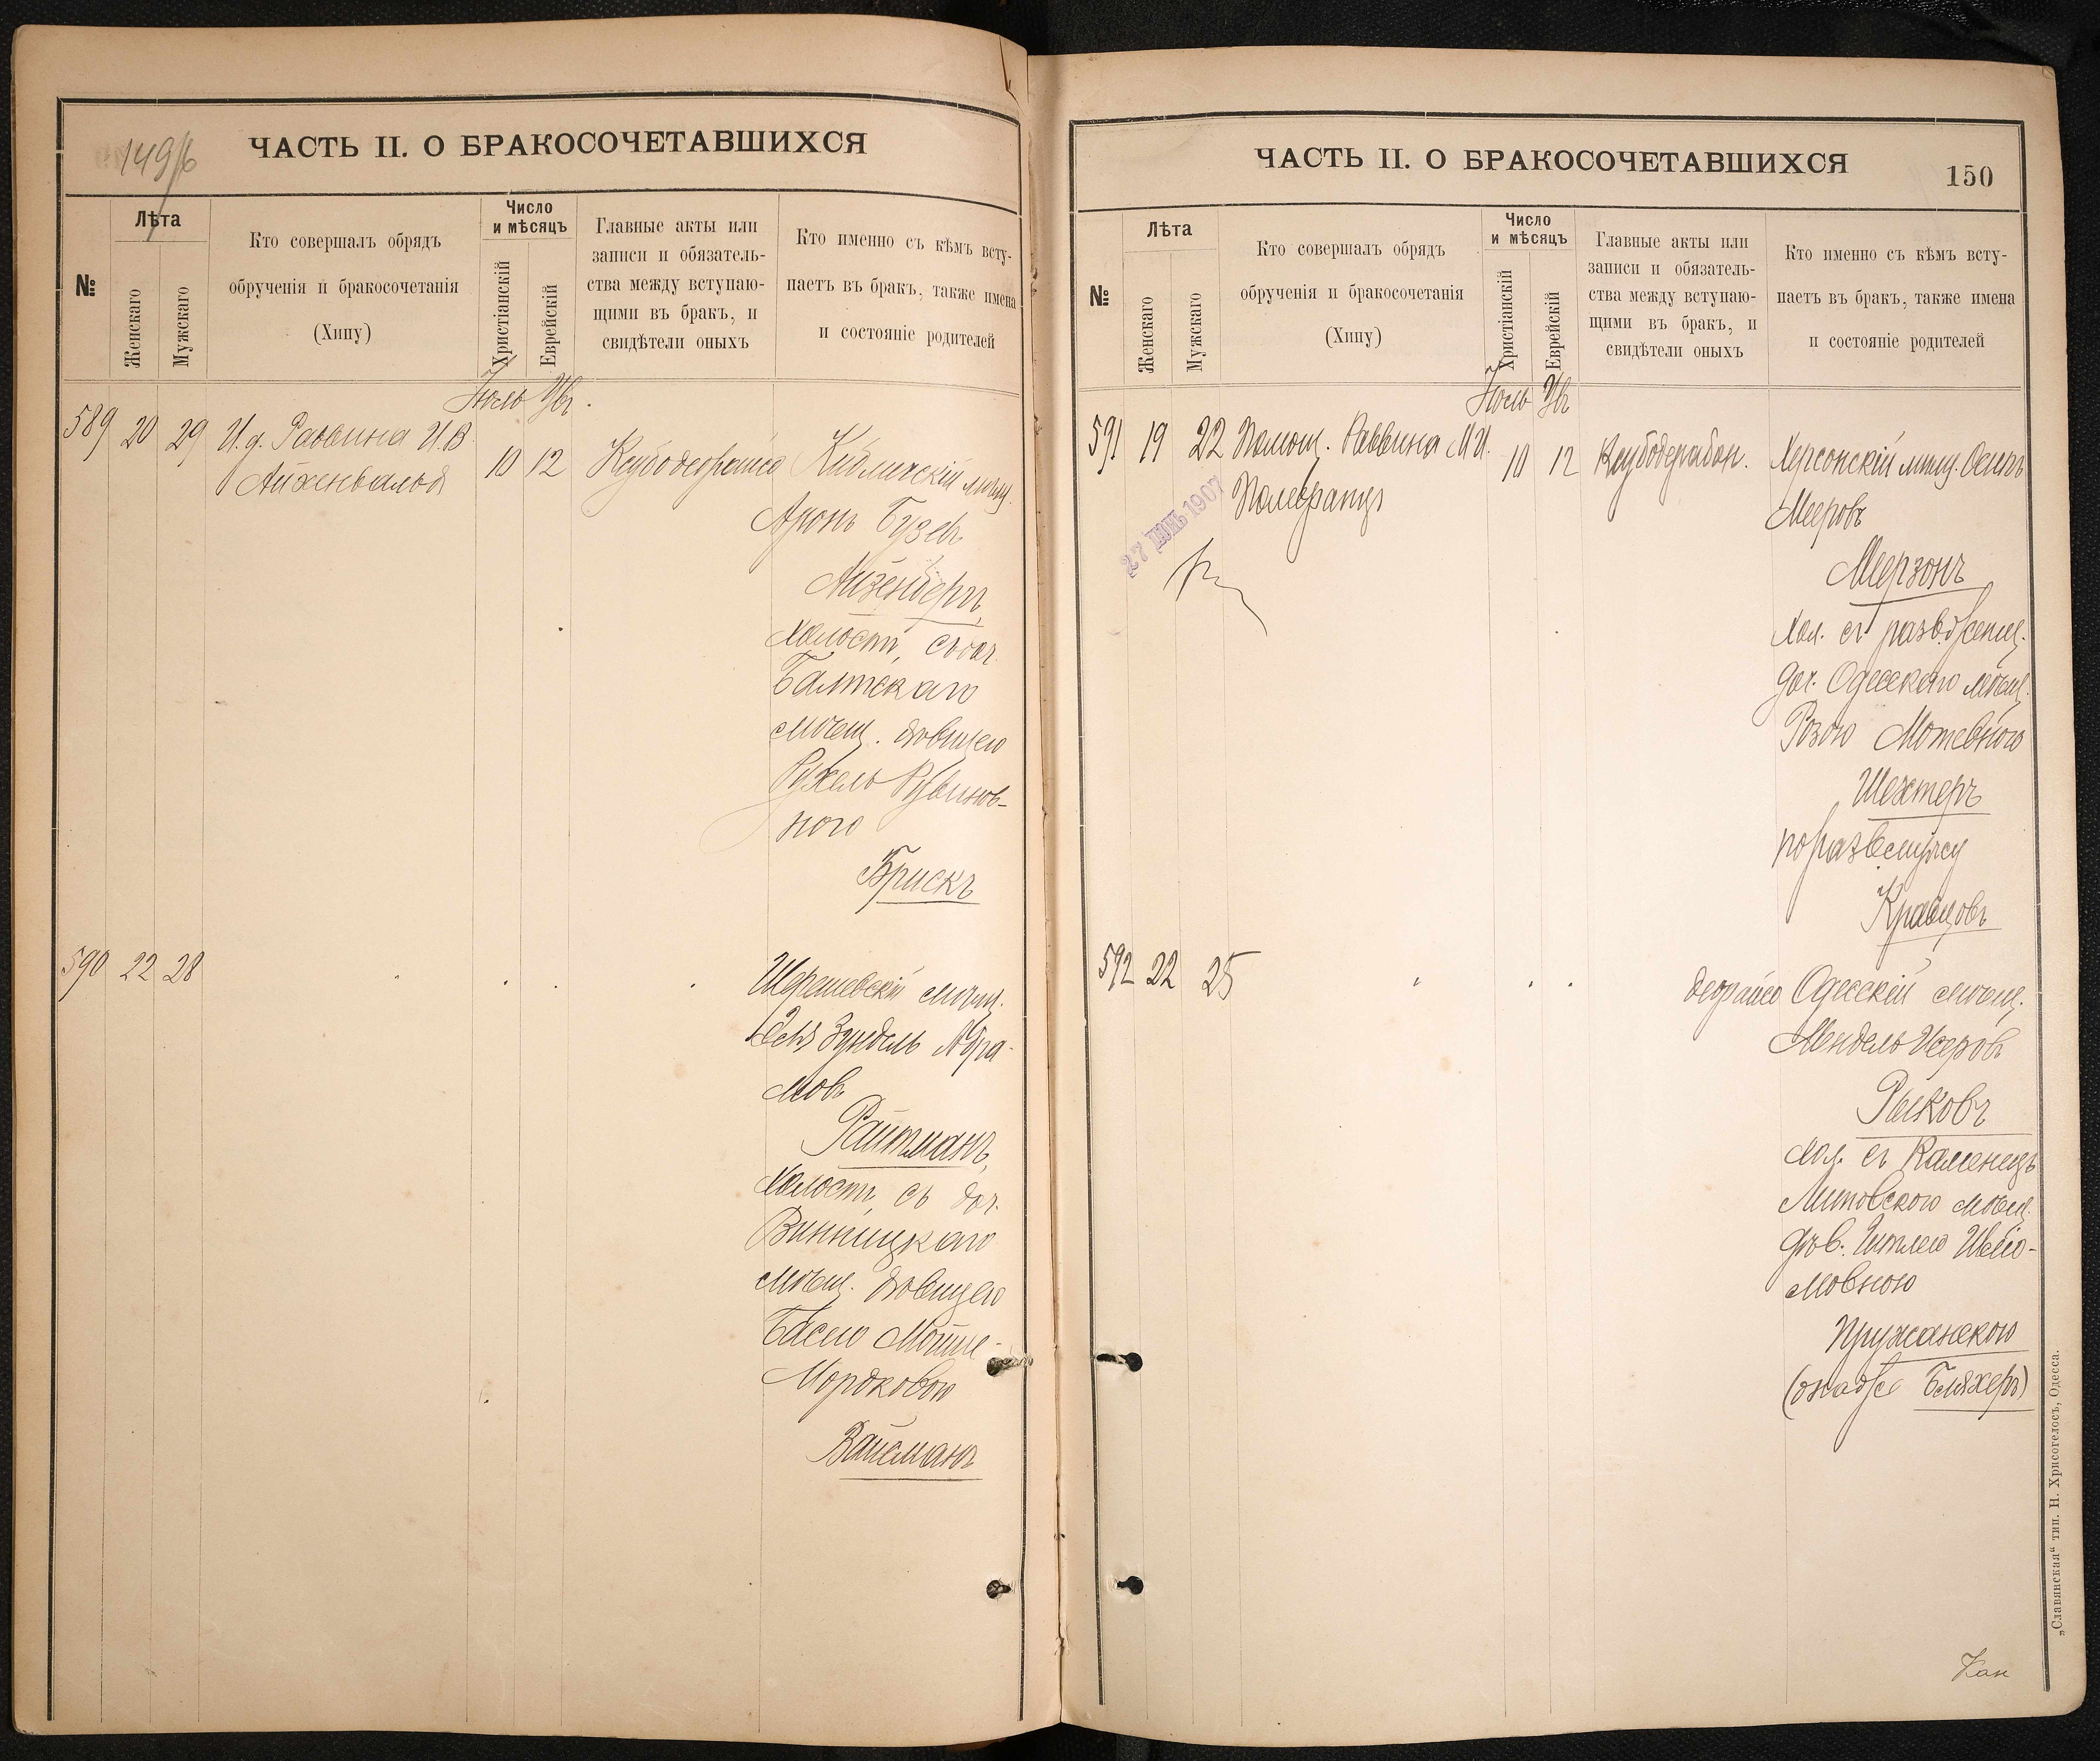 149/б
ЧАСТЬ II. О БРАКОСОЧЕТАВШИХСЯ
№
Лѣта
Женскаго
Мужскаго
Кто совершалъ обрядъ
обрученія и бракосочетанія
(Хипу)
Число
и мѣсяцъ
Христіанскій
Еврейскій
Главные акты или
записи и обязатель-
ства между вступаю-
щими въ бракъ, и
свидѣтели оныхъ
Кто именно съ кѣмъ всту-
паетъ въ бракъ, также имена
и состояніе родителей
589 20 29 И.д. Раввина И.В.
Айхенвальдъ
10 12
Мѣщ.
Аронъ Бузевъ
Айзенбергъ,
холостъ, съ доч.
Балтскаго
мѣщ. дѣвицею
Рухель Рувинов-
ною
Брискъ
590 22 28
Шерешевскій мѣщ.
Зундель Абра-
мовъ
Райтманъ,
холостъ, съ доч.
Винницкаго
мѣщ. дѣвицею
Басею Мошко-
Мордковою
Вайсманъ
ЧАСТЬ II. О БРАКОСОЧЕТАВШИХСЯ
150
№
Лѣта
Женскаго
Мужскаго
Кто совершалъ обрядъ
обрученія и бракосочетанія
(Хипу)
Число
и мѣсяцъ
Христіанскій
Еврейскій
Главные акты или
записи и обязатель-
ства между вступаю-
щими въ бракъ, и
свидѣтели оныхъ
Кто именно съ кѣмъ всту-
паетъ въ бракъ, также имена
и состояніе родителей
591 19 22 Помощ. Раввина М.И.
Померанцъ
10 12
27 ІЮНЬ 1907
Херсонскій мѣщ. Осипъ
Мееровъ
Меерзонъ
хол. съ развед. женщ.
доч. Одесскаго мѣщ.
Розою Мотевною
Шехтеръ
по разведш. мужу
Кравцовъ
592 22 25
Одесскій мѣщ.
Мендель Исеровъ
Рыковъ
хол. съ Каменецъ
Литовскою мѣщ.
дѣв. Гитлею Шлио-
мовною
Пружанскою
(она же Бляхеръ)
„Славянская“ тип. Н. Хрисогелосъ, Одесса.